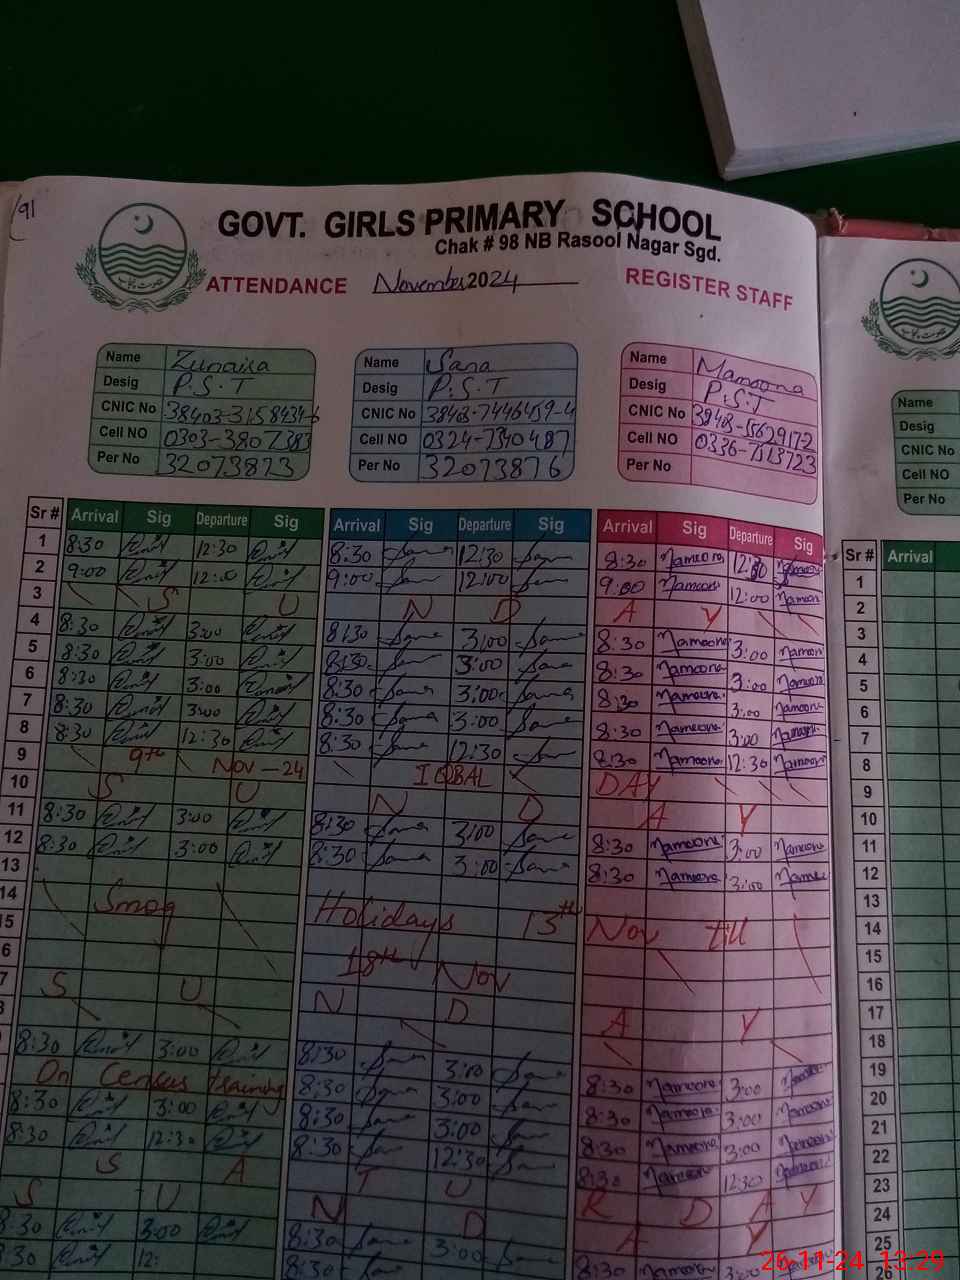 191
GOVT. GIRLS PRIMARY SCHOOL
Chak # 98 NB Rasool Nagar Sgd.
ATTENDANCE November 2024 REGISTER STAFF
Name Zunaira Name Sana Name Mamoona
Desig P.S.T Desig P.S.T Desig P.S.T
CNIC No CNIC No 38403-7446459-4 CNIC No 38403-1562917-2
Cell NO 0303-3807383 Cell NO 0324-7340487 Cell NO 0336-7513723
Per No 32073873 Per No 32073876 Per No
Name
Desig
CNIC No
Cell NO
Per No
Sr # Arrival Sig Departure Sig Arrival Sig Departure Sig Arrival Sig Departure Sig Sr # Arrival
1 8:30 12:30 8:30 12:30 8:30 Mamoona 1
2 9:00 12:00 9:00 12:00 9:00 Mamoona 12:00 Mamoona 2
3 S U N D A Y 3
4 8:30 3:00 8:30 3:00 8:30 Mamoona 3:00 Mamoona 4
5 8:30 3:00 8:30 3:00 8:30 Mamoona 3:00 Mamoona 5
6 8:30 3:00 8:30 3:00 8:30 Mamoona 3:00 Mamoona 6
7 8:30 3:00 8:30 3:00 8:30 Mamoona 3:00 Mamoona 7
8 8:30 12:30 8:30 12:30 8:30 Mamoona 12:30 Mamoona 8
9 9th Nov-24 IQBAL DAY 9
10 S U N D A Y 10
11 8:30 3:00 8:30 3:00 8:30 Mamoona 3:00 Mamoona 11
12 8:30 3:00 8:30 3:00 8:30 Mamoona 3:00 Mamoona 12
13 13
14 Smog Holidays 13th Nov till 14
15 18th Nov 15
6 16
7 S U N D A Y 17
8 18
8:30 3:00 8:30 3:00 8:30 Mamoona 3:00 19
On Census training 8:30 3:00 8:30 Mamoona 3:00 Mamoona 20
8:30 3:00 8:30 3:00 8:30 Mamoona 3:00 Mamoona 21
8:30 12:30 8:30 12:30 8:30 Mamoona 12:30 Mamoona 22
S A T U R D A Y 23
S U N D A Y 24
8:30 3:00 8:30 3:00 8:30 Mamoona 3:00 25
8:30 12: 8:30 26
26-11-24 13:29